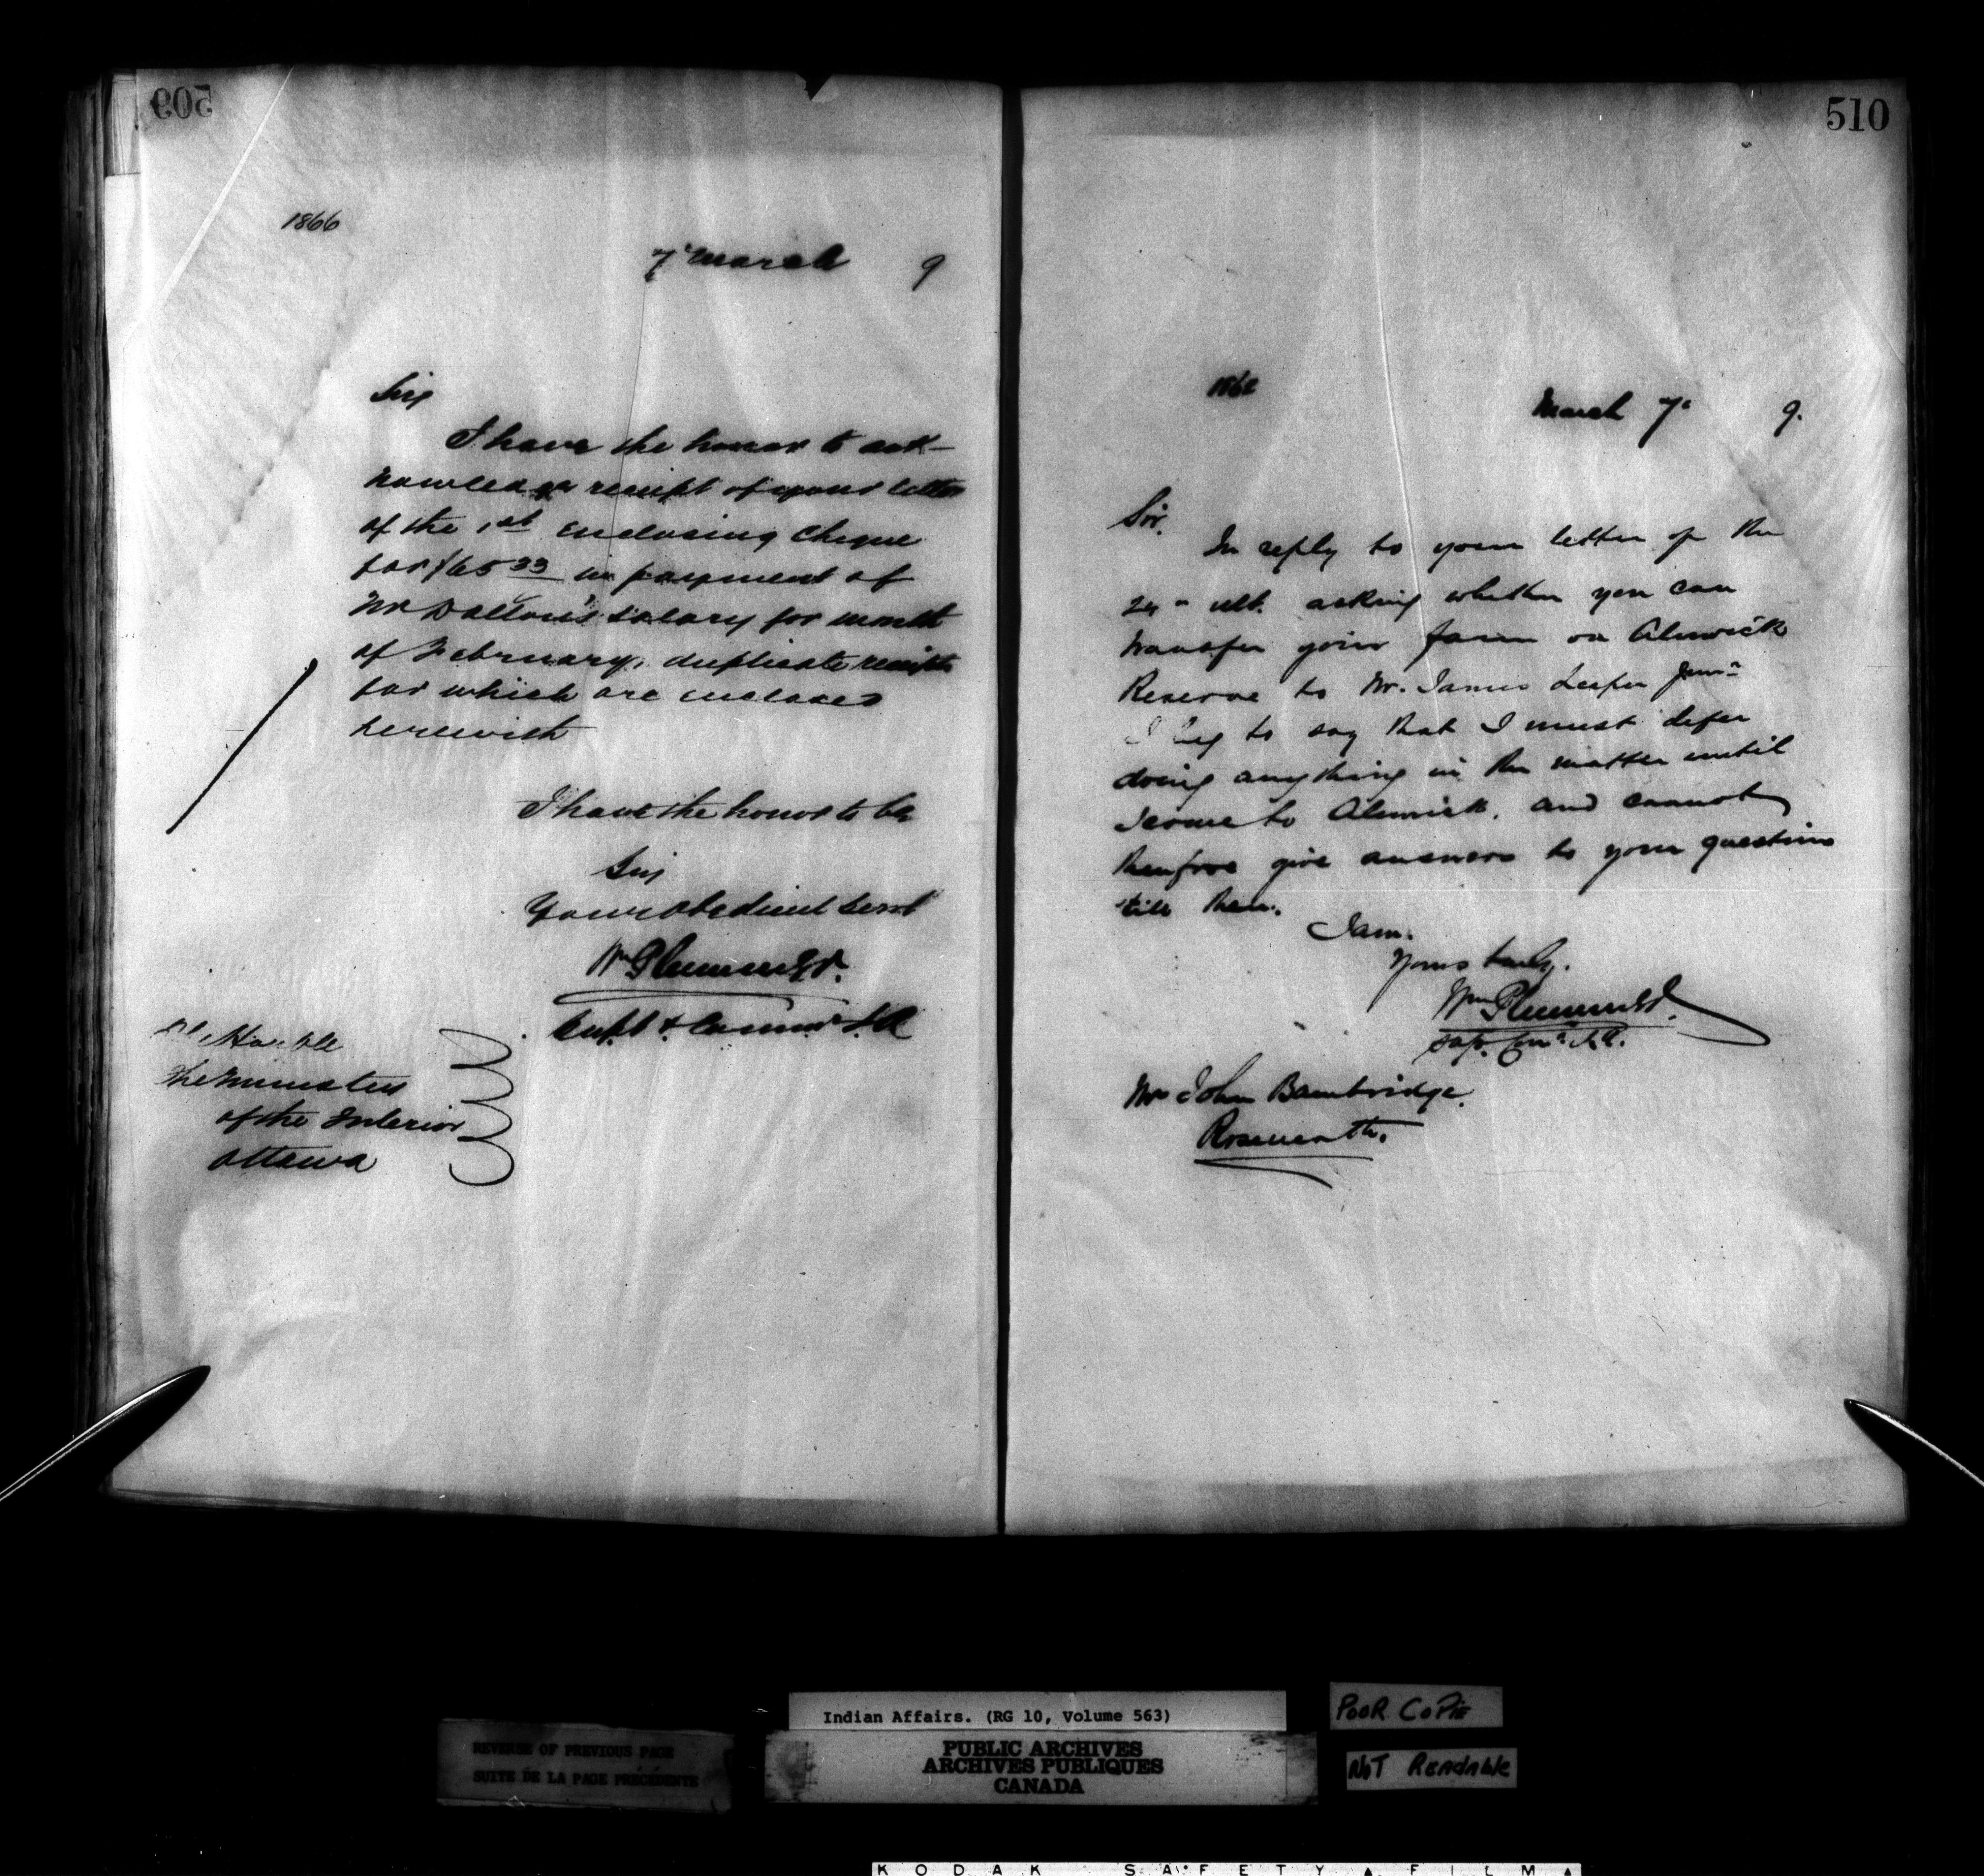 509
1866
7th March 9
Sir
I have the honor to ack-
nowledge receipt of your letter
of the 1st enclosing Cheque
for $65 33 in payment of
Mr Dalton's salary for month
of February, duplicate receipts
for which are enclosed
herewith
I have the honor to be
Sir
Your obedient Servt
Wm Plummer
Supt & Commr I A
Honble
The Minister
of the Interior
Ottawa
510
March 7th 9.
Sir.
In reply to your letter of the
24th ult. asking whether you can
transfer your farm on Alnwick
Reserve to Mr. James Leeper Junr
I beg to say that I must defer
doing anything in the matter until
I come to Alnwick, and cannot
therefore give answers to your questions
till then.
I am.
Yours truly.
Wm Plummer
Supt. Comr I.A.
Mr John Bambridge.
Roseneath.
Indian Affairs. (RG 10, Volume 563)
PUBLIC ARCHIVES
ARCHIVES PUBLIQUES
CANADA
REVERSE OF PREVIOUS PAGE
SUITE DE LA PAGE PRÉCÉDENTE
POOR COPIE
NOT READABLE
KODAK SAFETY FILM